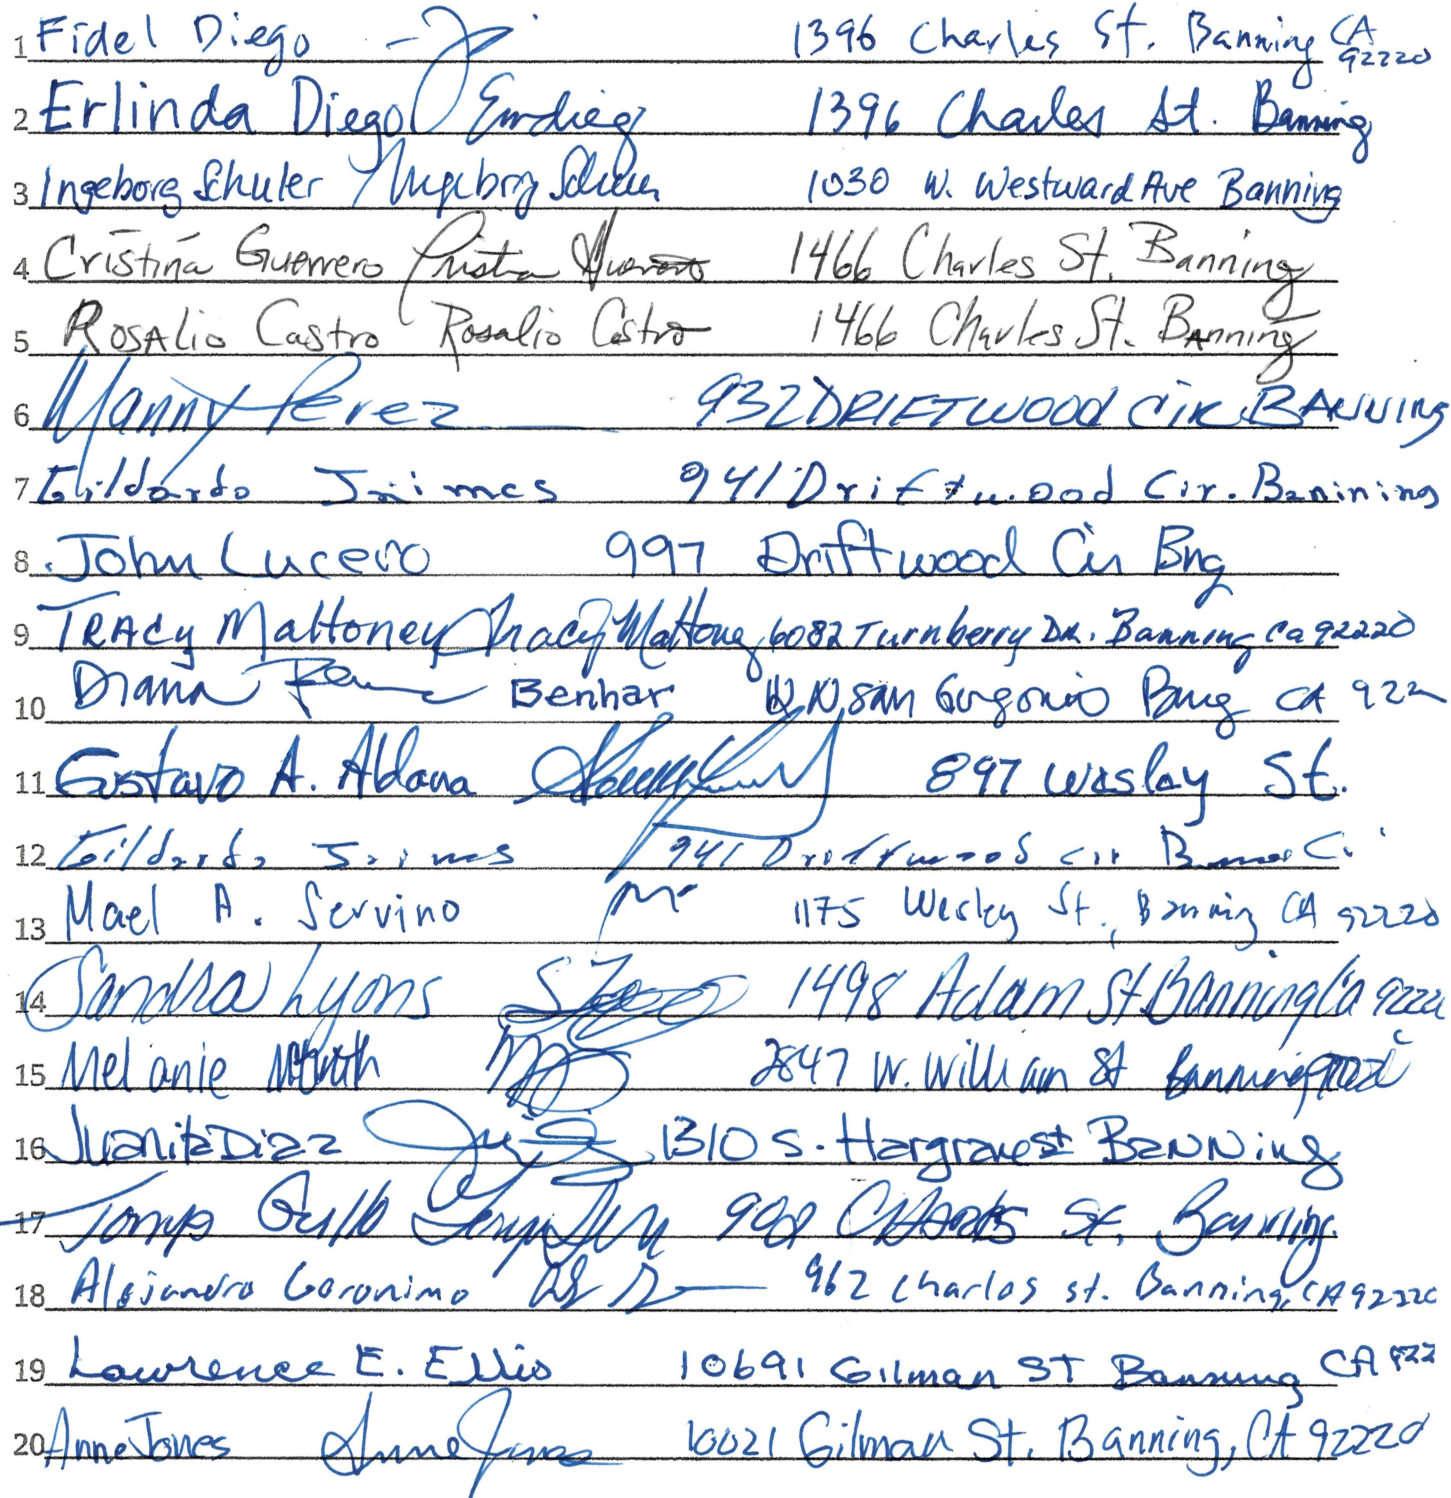 1 Fidel Diego 1396 Charles St. Banning CA 92220
2 Erlinda Diego 1396 Charles St. Banning
3 Ingeborg Schuler Ingeborg Schuler 1030 W. Westward Ave Banning
4 Cristina Guerrero Cristina Guerrero 1466 Charles St. Banning
5 Rosalio Castro Rosalio Castro 1466 Charles St. Banning
6 Manny Perez 932 DRIFTWOOD CIR BANNING
7 Gildardo Jaimes 941 Driftwood Cir. Banining
8 John Lucero 997 Driftwood Cir Bng
9 TRACy Maltoney Tracy Maltoney 6082 Turnberry DR. Banning Ca 92220
10 Diana Benhar N. San Gorgonio Bng CA 922
11 Gustavo A. Aldana 897 Wesley St.
12 Gildardo Jaimes 941 Driftwood cir
13 Mael A. Servino 1175 Wesley St., Banning CA 92220
14 Sandra Lyons 1498 Adam St. Banning Ca 9222
15 Melanie 2847 W. William St Banning
16 Juanita Diaz 1310 S. Hargrave st Banning
17 St. Banning
18 Alejandro Geronimo 962 charles st. Banning, CA 92220
19 Lawrence E. Ellis 10691 Gilman ST Banning CA 922
20 Anne Jones Anne Jones 10021 Gilman St. Banning, CA 92220